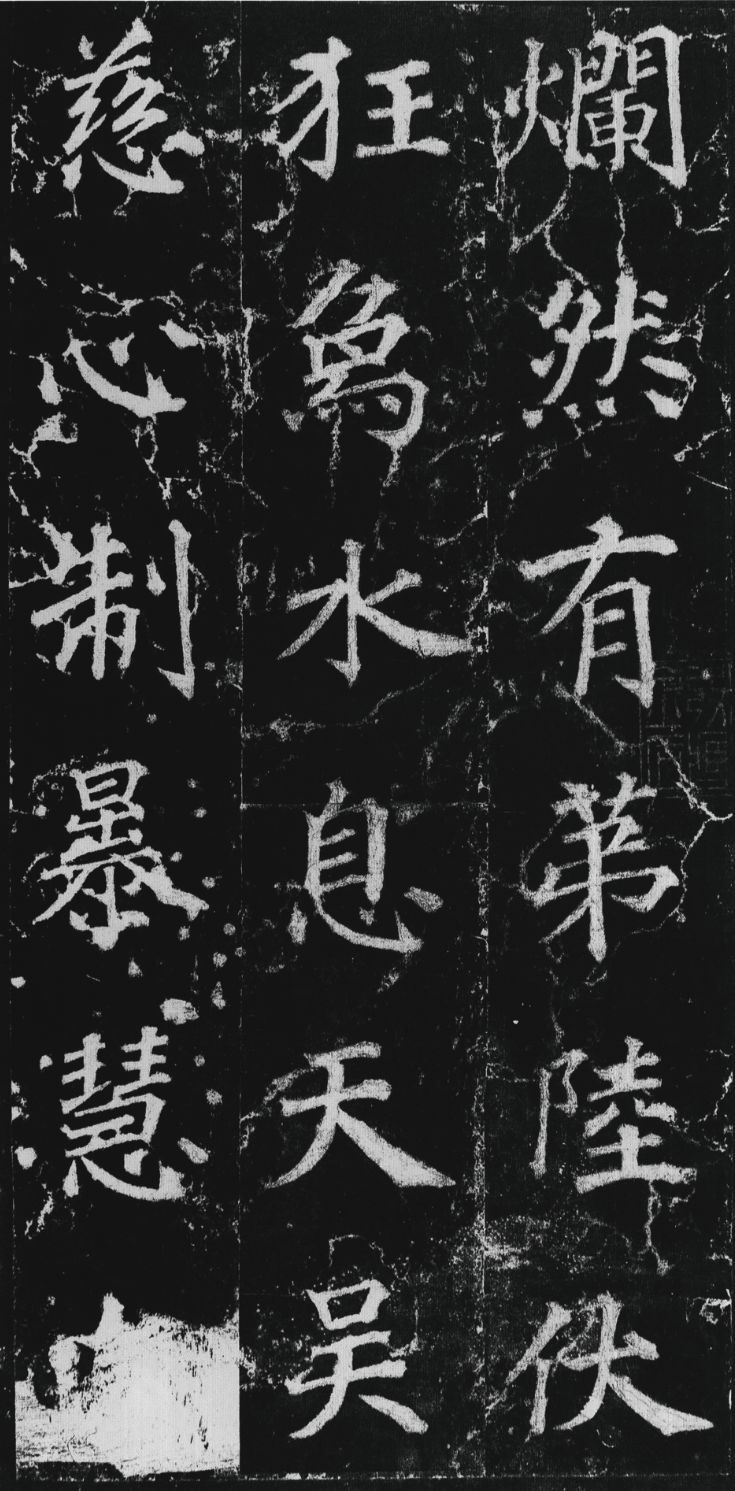 爛然有第陸伏
狂象水息天吳
慈心制暴慧